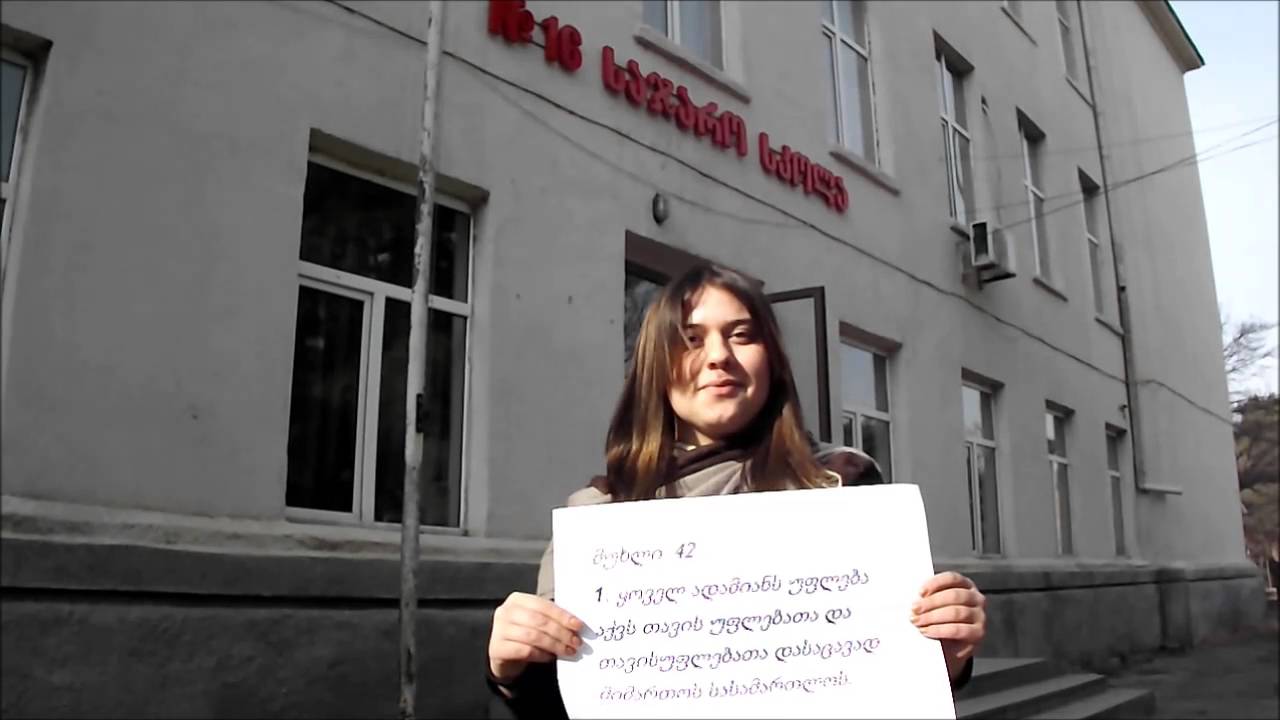 №16 საჯარო სკოლა
მუხლი 42
1. ყოველ ადამიანს უფლება
აქვს თავის უფლებათა და
თავისუფლებათა დასაცავად
მიმართოს სასამართლოს.